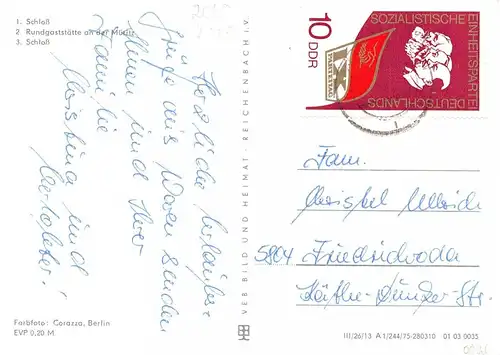 1. Schloß
2 Rundgaststätte an der Müritz
3. Schloß
Herzliche Urlaubs-
grüße aus Waren senden
Ihnen und Ihrer
Familie
und
VEB BILD UND HEIMAT · REICHENBACH i. V.
10
DDR
SOZIALISTISCHE
EINHEITSPARTEI
DEUTSCHLANDS
IX. PARTEITAG
Fam.
Christel Ullrich
5804 Friedrichroda
Käthe-Duncker-Str.
Farbfoto: Corazza, Berlin
EVP 0,20 M
III/26/13 A 1/244/75-280310 01 03 0035